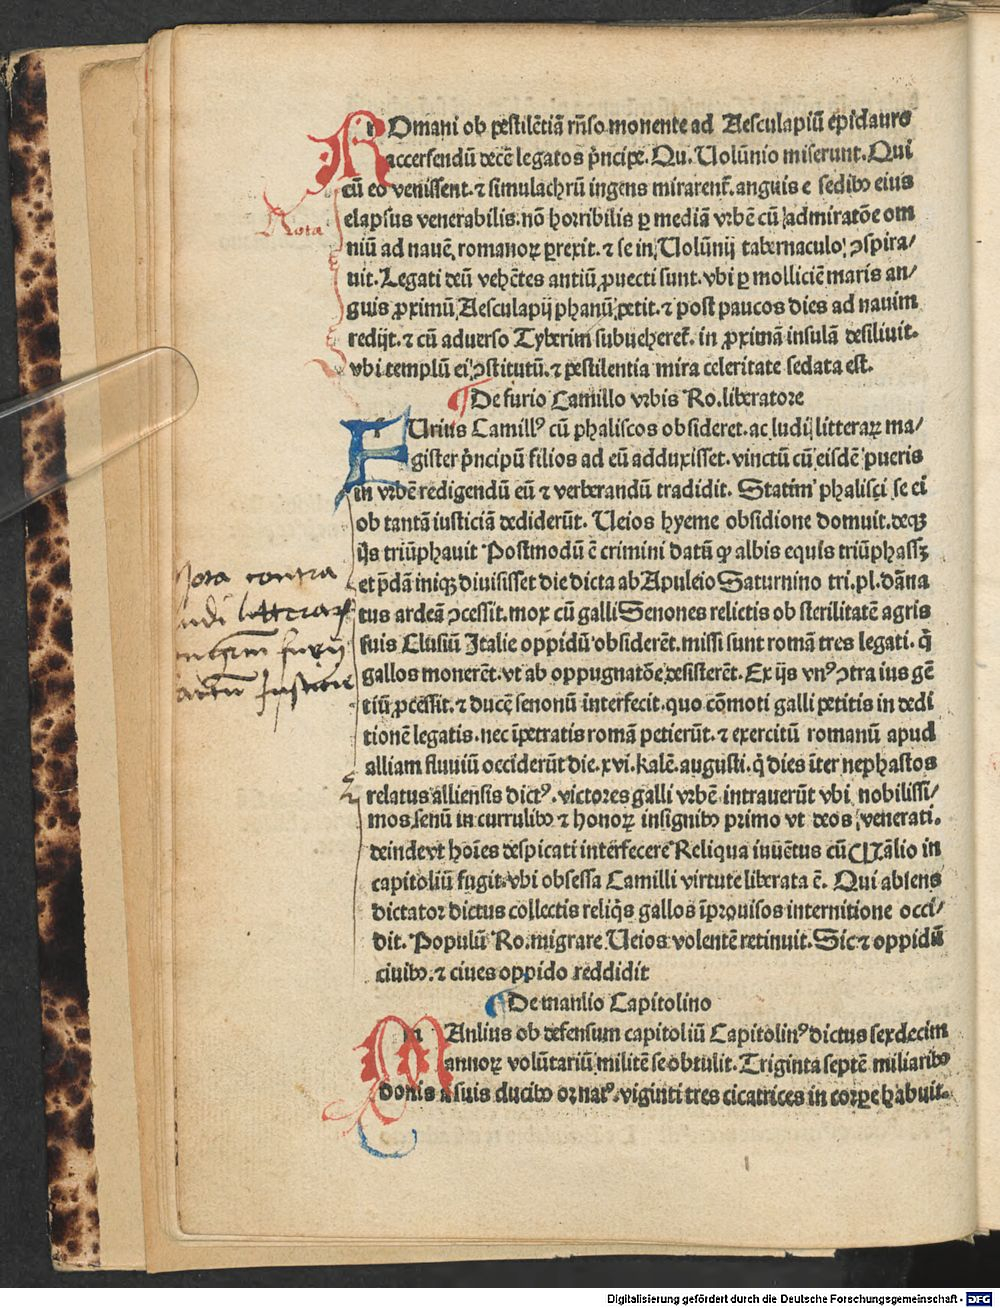 ROmani ob pestilẽtiã rñso monente ad Aesculapiũ epidauro
accersendũ decẽ legatos p̃ncipe. Qu. Uolũnio miserunt. Qui
cũ eo venissent. ⁊ simulachrũ ingens mirarent̃. anguis e sedibꝰ eius
Nota
elapsus venerabilis. nõ horribilis ꝑ mediã vrbẽ cũ admiratõe om
niũ ad nauẽ romanoꝝ ꝑrexit. ⁊ se in Uolũnij tabernaculo ꝯspira/
uit. Legati deũ vehẽtes antiũ ꝓuecti sunt. vbi ꝑ molliciẽ maris an/
guis ꝓximũ Aesculapij phanũ petit. ⁊ post paucos dies ad nauim
redijt. ⁊ cũ aduerso Tyberim subueheret̃. in ꝓximã insulã desiliuit.
vbi templũ ei ꝯstitutũ. ⁊ pestilentia mira celeritate sedata est.
¶ De furio Camillo vrbis Ro. liberatore
FUrius Camillꝰ cũ phaliscos obsideret. ac ludi litteraꝝ ma/
gister p̃ncipũ filios ad eũ adduxisset. vinctũ cũ eisdẽ pueris
in vrbẽ redigendũ eũ ⁊ verberandũ tradidit. Statim phalisci se ei
ob tantã iusticiã dediderũt. Ueios hyeme obsidione domuit. deqꝫ
ijs triũphauit Postmodũ ẽ crimini datũ ꝙ albis equis triũphassꝫ
Nota contra
et p̃dã iniqꝫ diuisisset die dicta ab Apuleio Saturnino tri. pl. dãna
ludi litteraꝝ
tus ardeã ꝯcessit. mox cũ galli Senones relictis ob sterilitatẽ agris
suis Clusiũ Italie oppidũ obsiderẽt. missi sunt romã tres legati. q̃
furij
gallos monerẽt. vt ab oppugnatõe desisterẽt. Ex ijs vnꝰ ꝯtra ius gẽ
tiũ ꝓcessit. ⁊ ducẽ senonũ interfecit. quo cõmoti galli petitis in dedi
tionẽ legatis. nec ĩpetratis romã petierũt. ⁊ exercitũ romanũ apud
alliam fluuiũ occiderũt die. xvi. kalẽ. augusti. q̃ dies ĩter nephastos
relatus alliensis dictꝰ. victores galli vrbẽ intrauerũt vbi nobilissi/
mos senũ in currulibꝰ ⁊ honoꝝ insignibꝰ primo vt deos venerati.
deinde vt hoĩes despicati interfecere Reliqua iuuẽtus cũ Mãlio in
capitoliũ fugit. vbi obsessa Camilli virtute liberata ẽ. Qui absens
dictator dictus collectis reliq̃s gallos ĩprouisos internitione occi/
dit. Populũ Ro. migrare Ueios volentẽ retinuit. Sic ⁊ oppidũ
ciuibꝰ. ⁊ ciues oppido reddidit
¶ De manlio Capitolino
MAnlius ob defensum capitoliũ Capitolinꝰ dictus sexdecim
annoꝝ volũtariũ militẽ se obtulit. Triginta septẽ miliaribꝰ
donis a suis ducibꝰ ornatꝰ. viginti tres cicatrices in corꝑe habuit.
Digitalisierung gefördert durch die Deutsche Forschungsgemeinschaft - DFG